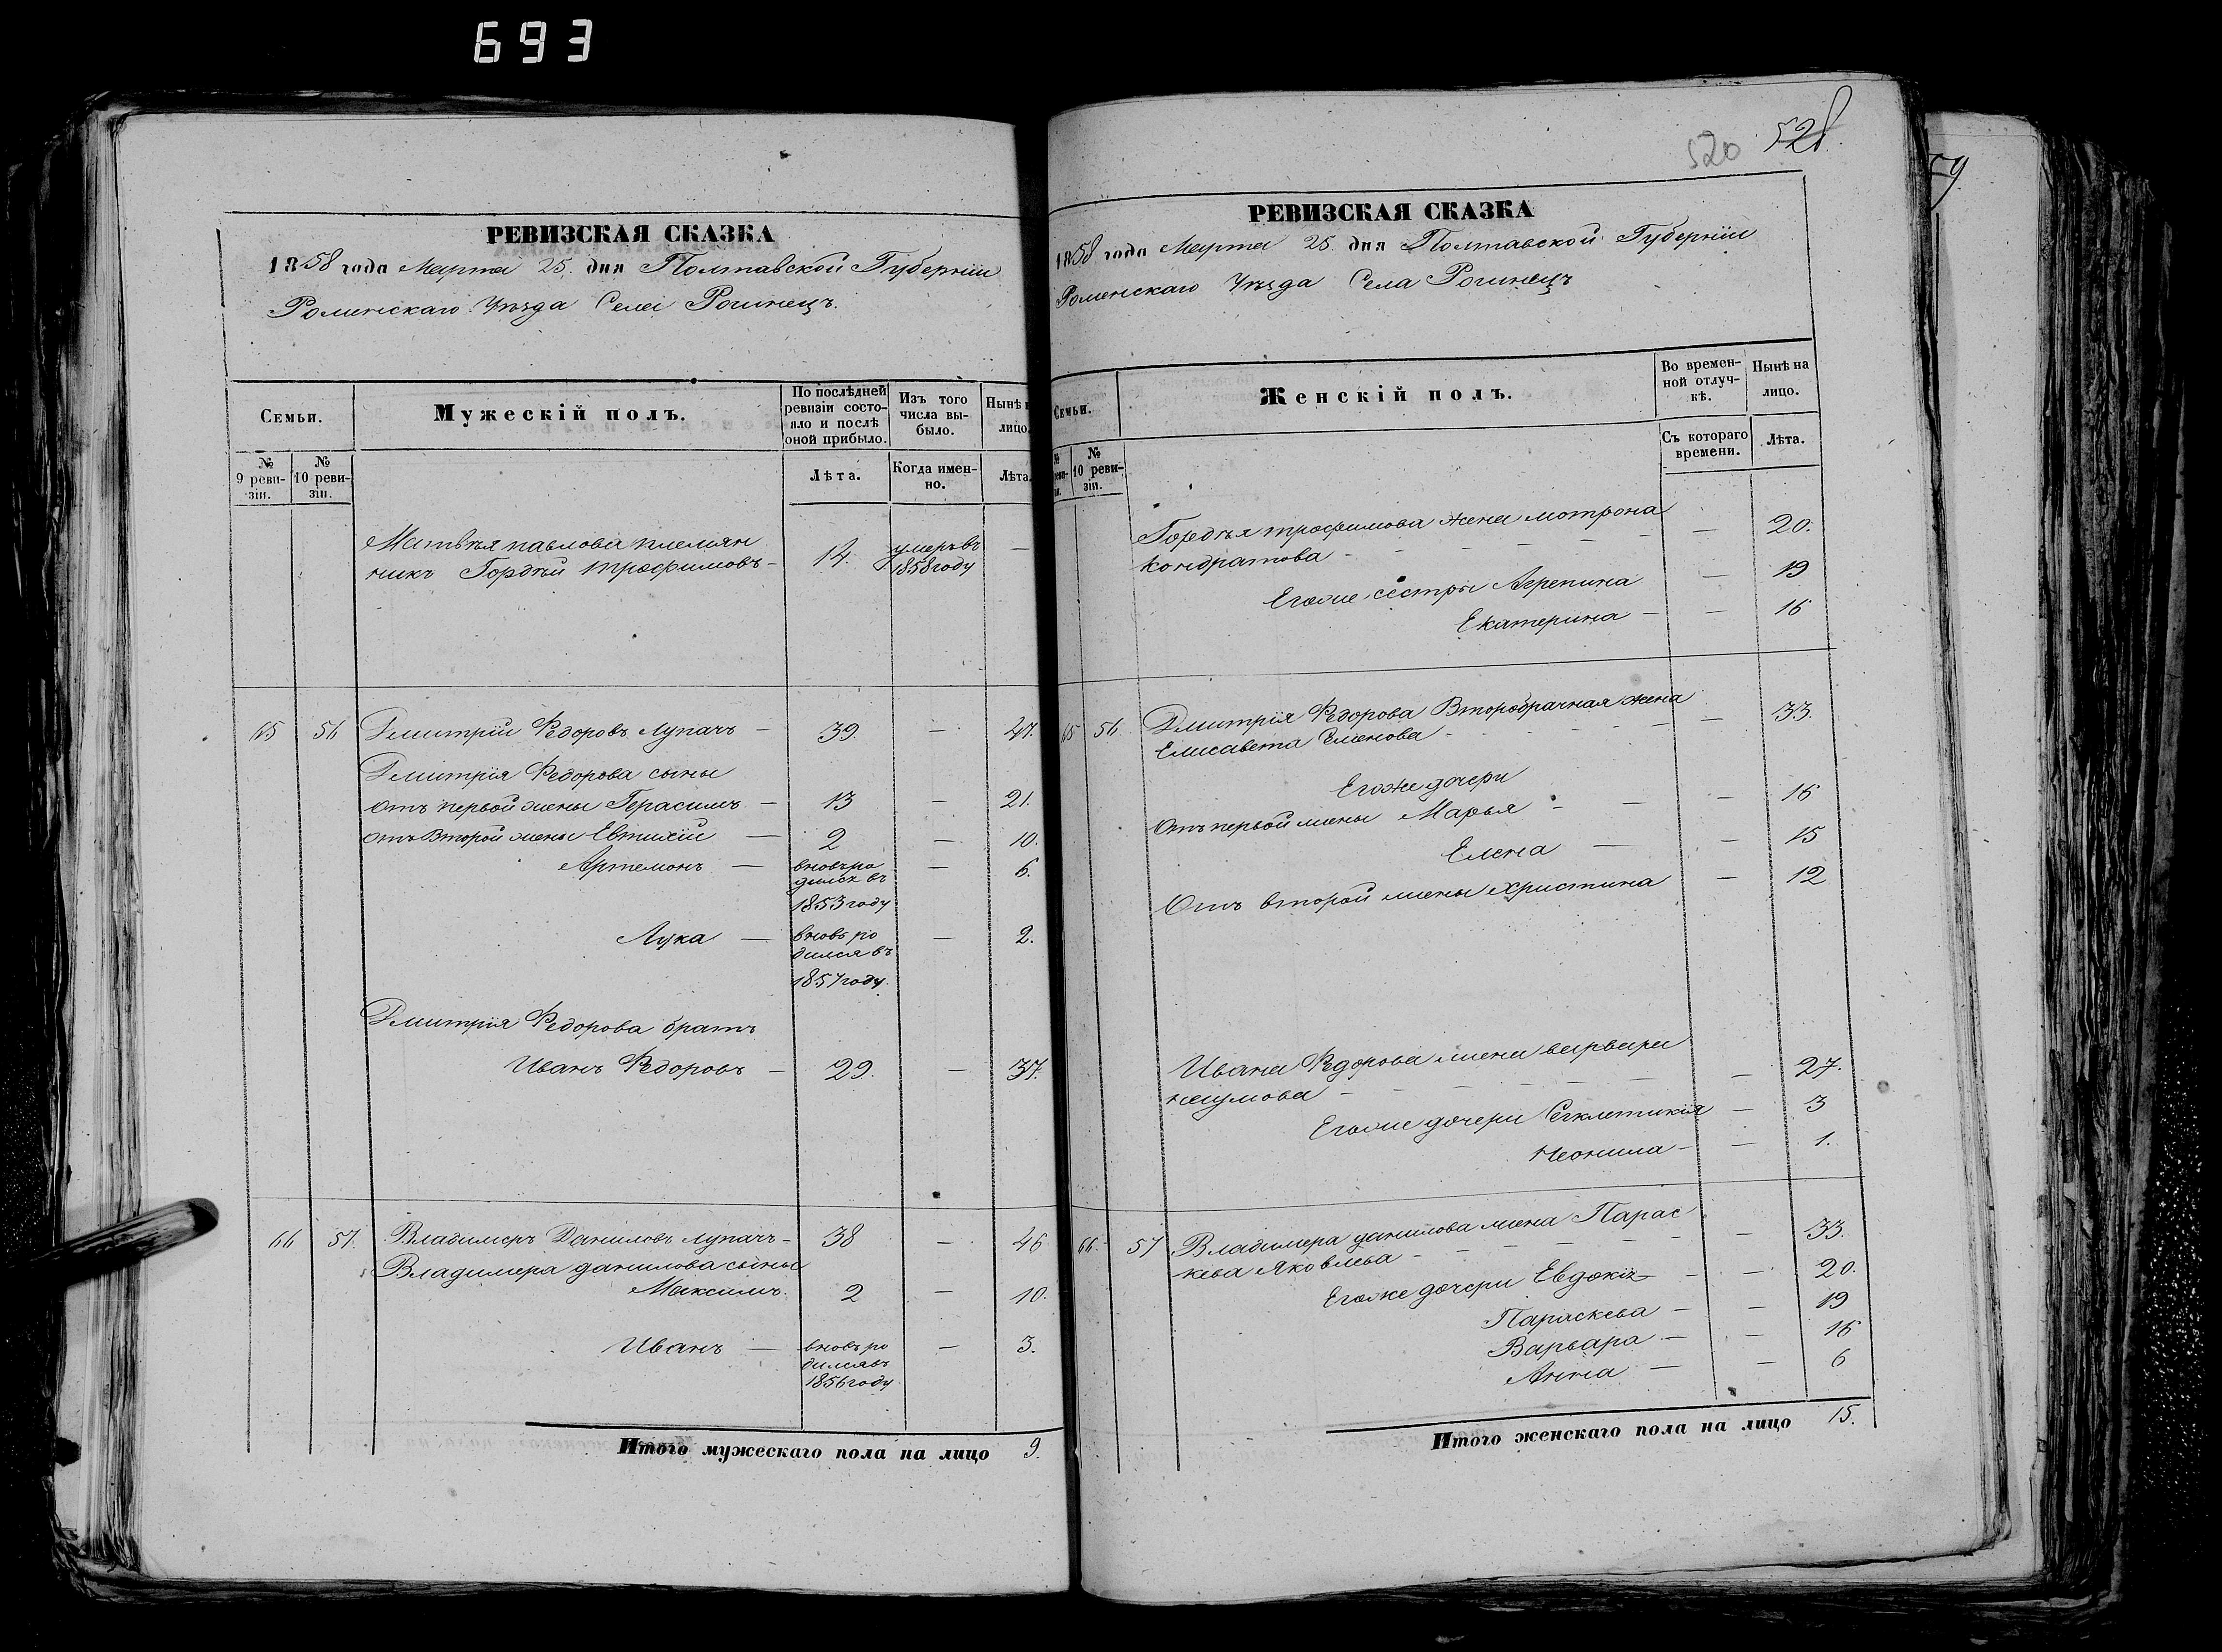 693
РЕВИЗСКАЯ СКАЗКА
1858 года Марта 25. дня Полтавской Губерніи
Роменскаго Уѣзда Села Рогинецъ.
Семьи.
Мужескій полъ.
По послѣдней ревизіи состояло и послѣ оной прибыло.
Изъ того числа выбыло.
Нынѣ
лицо.
№ 9 ревизіи.
№ 10 ревизіи.
Лѣта.
Когда именно.
Лѣта.
Матвѣя павлова племян
никъ Гордѣй трофимовъ – 14. умеръ въ 1858 году –
65 56 Дмитрій Федоровъ Лупачъ – 39. – 47.
Дмитрія Федорова сыны
отъ первой жены Герасимъ – 13 – 21.
отъ Второй жены Евтихій – 2 – 10.
Артемонъ – вновь ро
дился въ
1853 году – 6.
Лука – вновь ро
дился въ
1857 году. – 2.
Дмитрія Федорова братъ
Иванъ Федоровъ – 29. – 37.
66 57. Владимеръ Даниловъ Лупачъ – 38 – 46
Владимера данилова сыны
Максимъ. 2 – 10.
Иванъ – вновь ро
дился въ
1856 году – 3.
Итого мужескаго пола на лицо 9.
520 528.
РЕВИЗСКАЯ СКАЗКА
1858 года Марта 25. дня Полтавской Губерніи
Роменскаго Уѣзда Села Рогинецъ
Семьи.
Женскій полъ.
Во временной отлучкѣ.
Нынѣ на лицо.
№
№ 10 ревизіи.
Съ котораго времени.
Лѣта.
Гордѣя трофимова жена мотрона
кондратова – – 20.
Егоже сестры Агрепина – 19
Екатерина – – 16
65 56. Дмитрія Федорова Второбрачная жена
Елисавета Семенова – – 33.
Егоже дочери
отъ первой жены Марья – – 16
Елена – – 15
Отъ второй жены Христина – 12
Ивана Федорова жена варвара
наумова – – 27.
Егоже дочери Секлетикія – 3
Неонила – – 1.
66. 57 Владимера данилова жена Парас
кева Яковлева – – 33.
Егоже дочери Евдокія – – 20.
Параскева – – 19
Варвара – – 16
Анна – – 6
Итого женскаго пола на лицо 15.